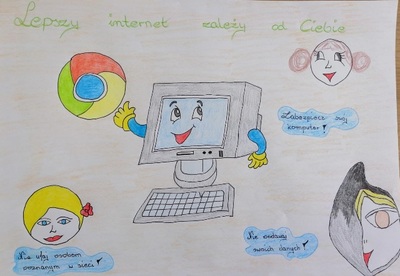 Lepszy internet zależy od Ciebie
Zabezpiecz swój
komputer!
Nie ufaj osobom
poznanym w sieci!
Nie podawaj
swoich danych!